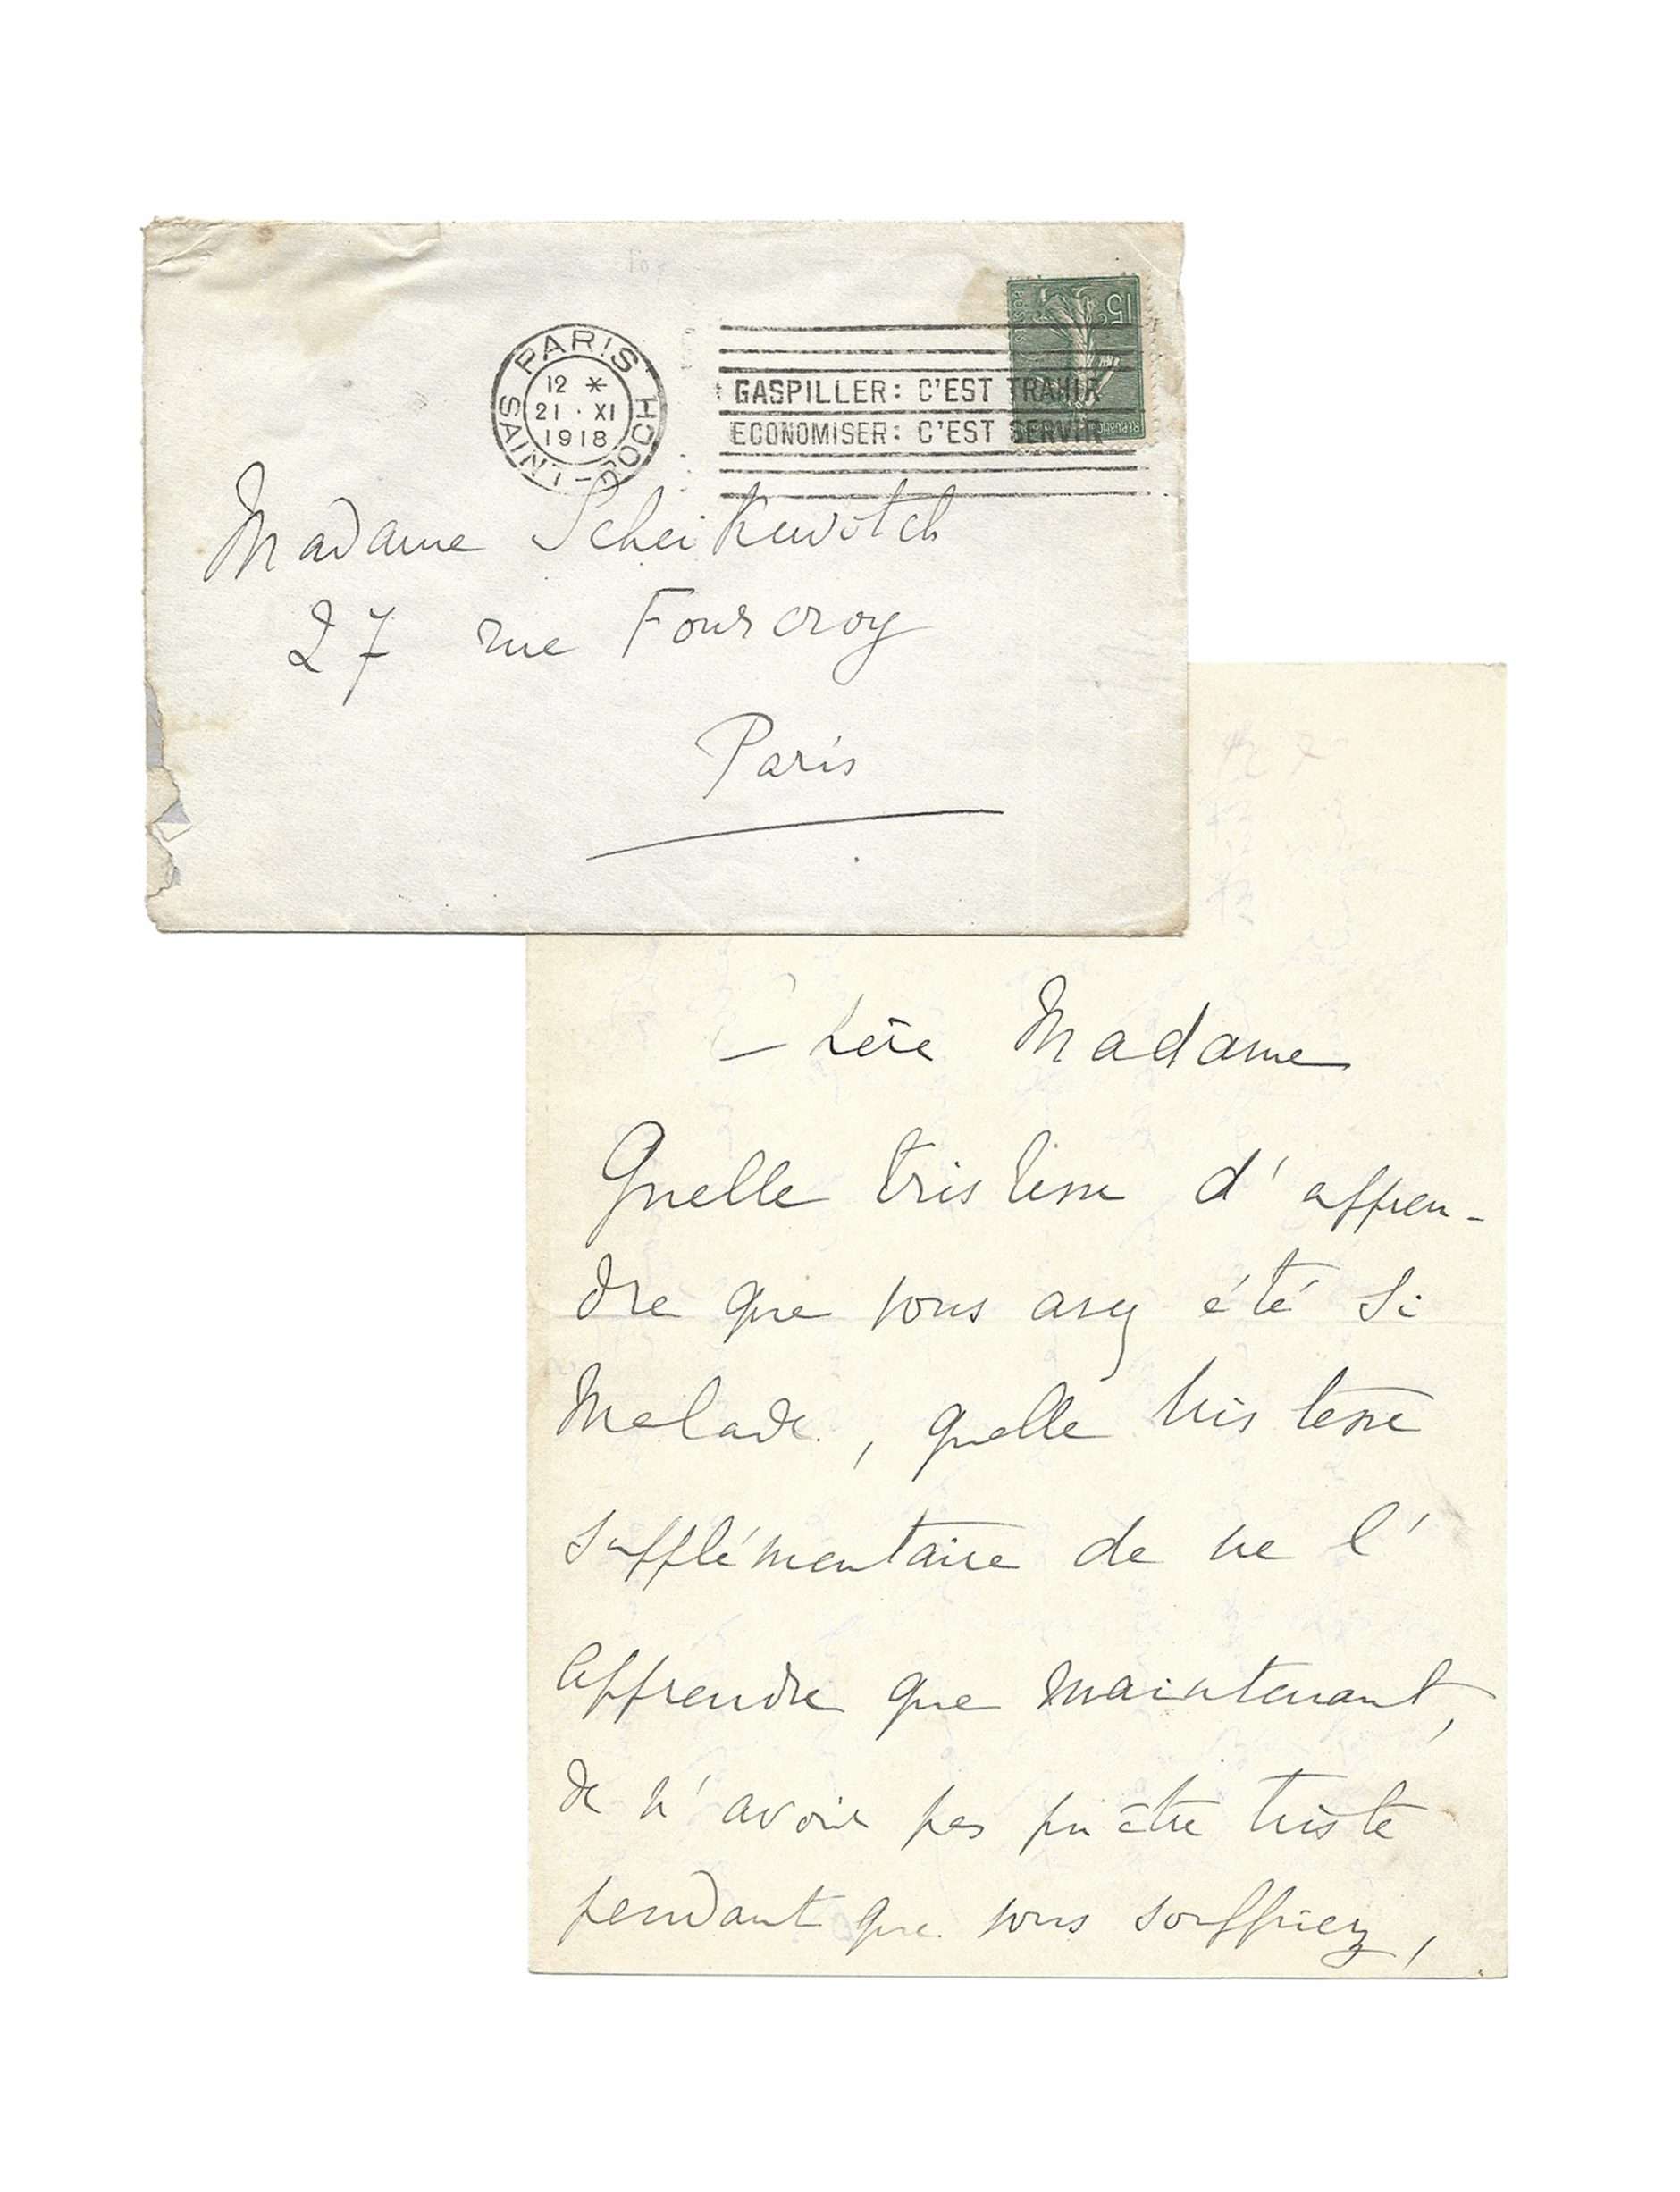 PARIS HOCHE - SAINT
12 *
21 · XI
1918
GASPILLER: C'EST TRAHIR
ECONOMISER: C'EST SERVIR
15c
Madame Scheikevitch
27 rue Fourcroy
Paris
Chère Madame
Quelle tristesse d'appren-
dre que vous avez été si
malade, quelle tristesse
supplémentaire de ne l'
apprendre que maintenant,
de n'avoir pas pu être triste
pendant que vous souffriez,